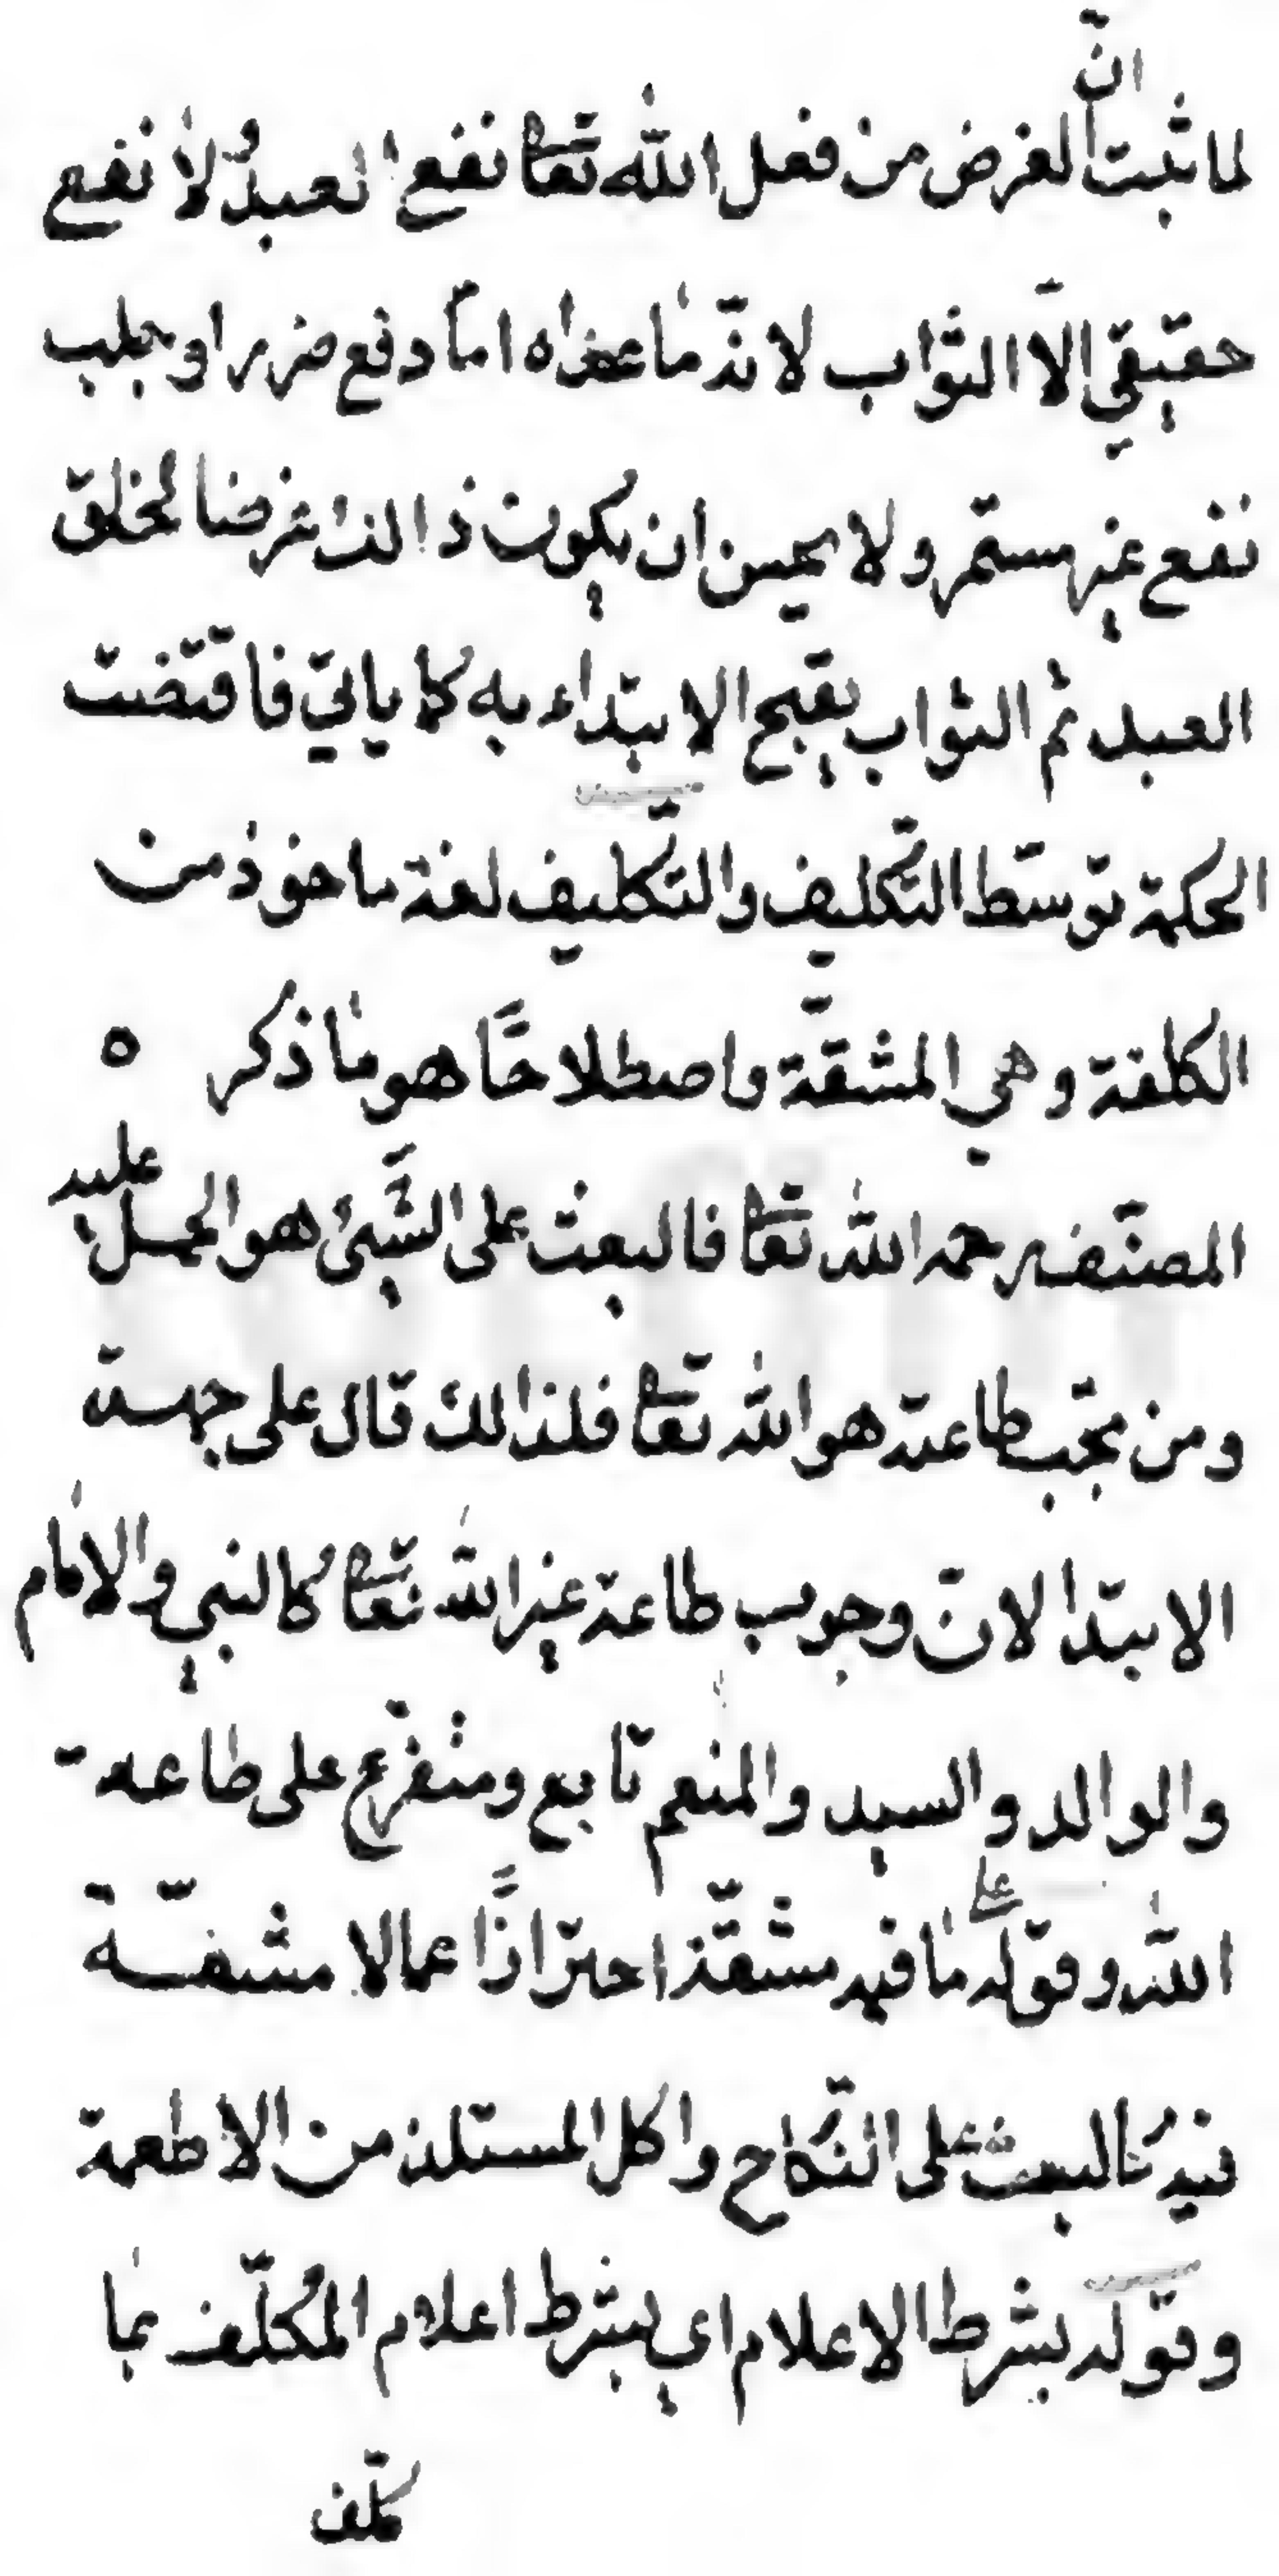 انّ
لما ثبت الغرض من فعل الله تعا نفع العبد ولا نفع
حقيقي الاّ الثواب لانّ ما عداه امّا دفع ضرر او جلب
نفع غير مستمر ولا يحسن ان يكون ذالك غرضا لخلق
العبد ثم الثواب يقبح الابتداء به كما ياتي فاقتضت
الحكمة توسّط التكليف والتّكليف لغة ماخوذ من
الكلفة وهي المشقّة واصطلاحًا هو ما ذكر ه
المصنّف رحمه الله تعا فالبعث على الشّيئ هو الحمل عليه
ومن تجب طاعته هو الله تعا فلذالك قال على جهة
الابتدا لانّ وجوب طاعة غير الله تعا كالنبي والامام
والوالد والسيد والمنعم تابع ومتفرّع على طاعة
الله وقوله على ما فيه مشقّة احترازًا عما لا مشقّة
فيه كالبعث على النّكاح واكل المستلذ من الاطعمة
وقوله بشرط الاعلام اي بشرط اعلام المُكلّف بما
كلّف